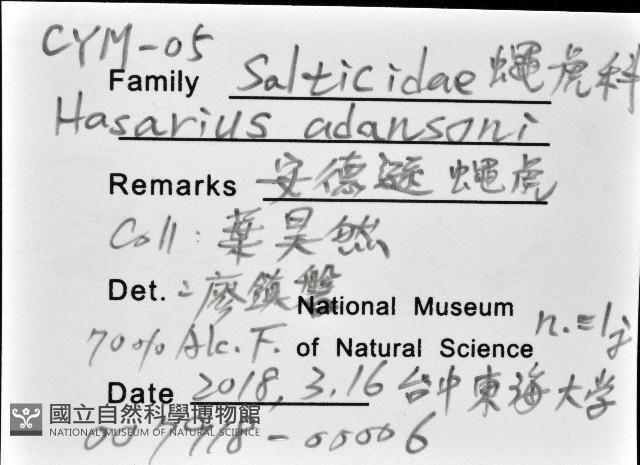 CYM-05
Family Salticidae 蠅虎科
Hasarius adansoni
Remarks 安德遜蠅虎
Coll: 葉昊然
Det.: 廖鎮磐
National Museum
70% Alc. F. of Natural Science
Date 2018, 3.16 台中東海大学
國立自然科學博物館
NATIONAL MUSEUM OF NATURAL SCIENCE
-00006